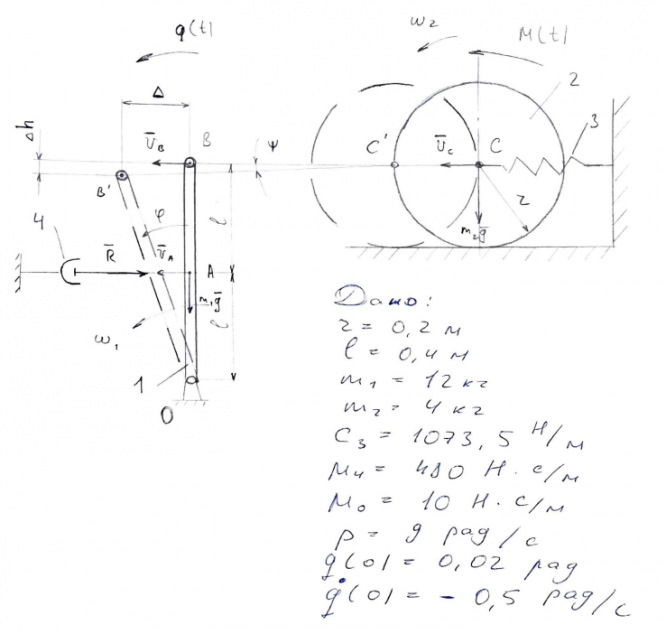 q(t)
ω₂
M(t)
Δ
2
Δh
V̄_B
B
ψ
C'
V̄_C
C
3
B'
φ
l
r
4
R̄
V̄_A
A
m₂ḡ
m₁ḡ
ω₁
l
1
O
Дано:
r = 0,2 м
l = 0,4 м
m₁ = 12 кг
m₂ = 4 кг
C₃ = 1073,5 Н/м
μ₄ = 480 Н·с/м
M₀ = 10 Н·с/м
p = 9 рад/с
q(0) = 0,02 рад
q̇(0) = - 0,5 рад/с